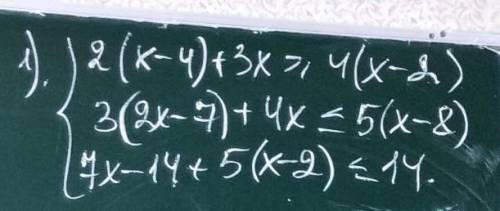 1). 2(x-4)+3x ≥ 4(x-2)
3(2x-7)+4x ≤ 5(x-8)
7x-14+5(x-2) ≤ 14.